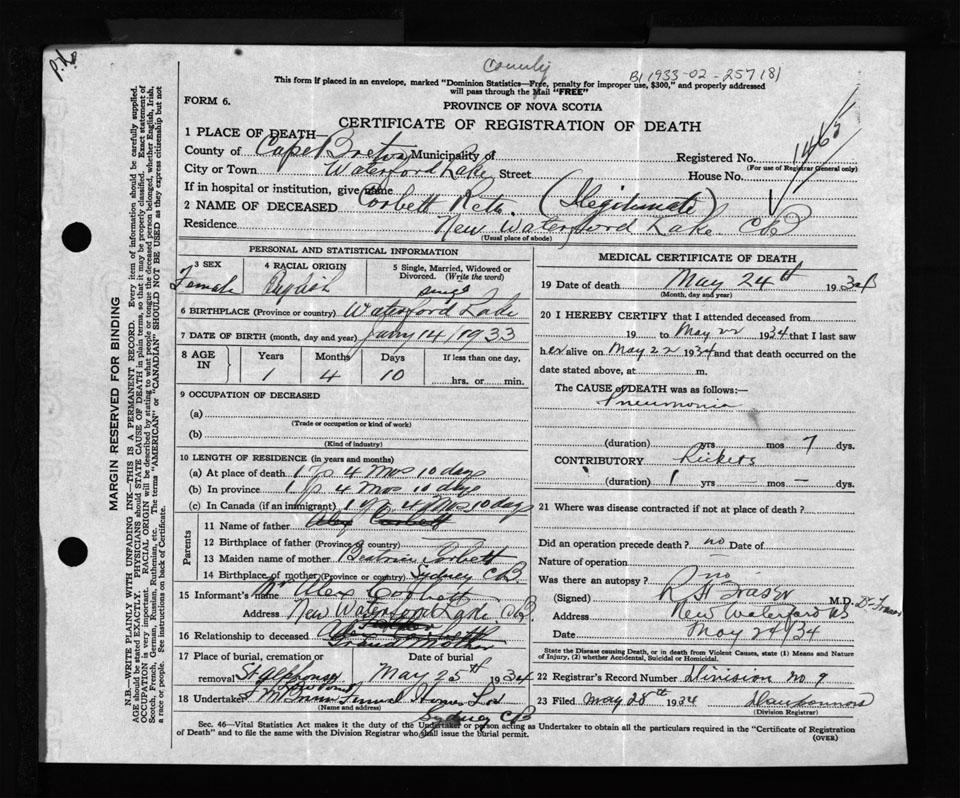 County
B1 1933-02-257181
This form if placed in an envelope, marked "Dominion Statistics—Free, penalty for improper use, $300," and properly addressed
will pass through the Mail "FREE"
FORM 6.
PROVINCE OF NOVA SCOTIA
CERTIFICATE OF REGISTRATION OF DEATH
1465
1 PLACE OF DEATH—
County of Cape Breton Municipality of Registered No.
(For use of Registrar General only)
City or Town Waterford Lake Street House No.
If in hospital or institution, give name
2 NAME OF DECEASED Corbett Reta. (Illegitimate)
Residence New Waterford Lake CB
(Usual place of abode)
PERSONAL AND STATISTICAL INFORMATION
3 SEX 4 RACIAL ORIGIN 5 Single, Married, Widowed or
Divorced. (Write the word)
Female English Single
6 BIRTHPLACE (Province or country) Waterford Lake
7 DATE OF BIRTH (month, day and year) Jany 14 / 1933
8 AGE IN Years Months Days If less than one day,
1 4 10 hrs. or min.
9 OCCUPATION OF DECEASED
(a)
(Trade or occupation or kind of work)
(b)
(Kind of industry)
10 LENGTH OF RESIDENCE (in years and months)
(a) At place of death 1 yr 4 Mos 10 days
(b) In province 1 yr 4 Mos 10 days
(c) In Canada (if an immigrant) 1 yr 4 Mos 10 days
Parents
11 Name of father Alex Corbett
12 Birthplace of father (Province or country)
13 Maiden name of mother Beatrice Corbett
14 Birthplace of mother (Province or country) Sydney CB
15 Informant's name Mrs Alex Corbett
Address New Waterford Lake CB.
16 Relationship to deceased Grand Mother
17 Place of burial, cremation or Date of burial
removal St Alphonsus May 25th 1934
18 Undertaker Funeral Homes Ltd
Sydney CB
MEDICAL CERTIFICATE OF DEATH
19 Date of death May 24th 1934
(Month, day and year)
20 I HEREBY CERTIFY that I attended deceased from
19 to May 22 1934 that I last saw
her alive on May 22 1934 and that death occurred on the
date stated above, at m.
The CAUSE OF DEATH was as follows:—
Pneumonia
(duration) yrs mos 7 dys.
CONTRIBUTORY Rickets
(duration) 1 yrs — mos — dys.
21 Where was disease contracted if not at place of death?
Did an operation precede death? no Date of
Nature of operation
Was there an autopsy? no
(Signed) R H Fraser M.D. Dr Fraser
Address New Waterford NS
Date May 24/34
State the Disease causing Death, or in death from Violent Causes, state (1) Means and Nature
of Injury, (2) whether Accidental, Suicidal or Homicidal.
22 Registrar's Record Number Division no 9
23 Filed May 28th 1934
(Division Registrar)
Sec. 46—Vital Statistics Act makes it the duty of the Undertaker or person acting as Undertaker to obtain all the particulars required in the "Certificate of Registration
of Death" and to file the same with the Division Registrar who shall issue the burial permit.
(OVER)
MARGIN RESERVED FOR BINDING
N.B.—WRITE PLAINLY WITH UNFADING INK—THIS IS A PERMANENT RECORD. Every item of information should be carefully supplied.
AGE should be stated EXACTLY. PHYSICIANS should STATE CAUSE OF DEATH in plain terms, so that it may be properly classified. Exact statement of
OCCUPATION is very important. RACIAL ORIGIN will be described by stating to what people or tongue the deceased person belonged, whether English, Irish,
Scotch, French, German, Russian, Ruthenian, etc. The terms "AMERICAN" or "CANADIAN" SHOULD NOT BE USED as they express citizenship but not
a race or people. See instructions on back of Certificate.